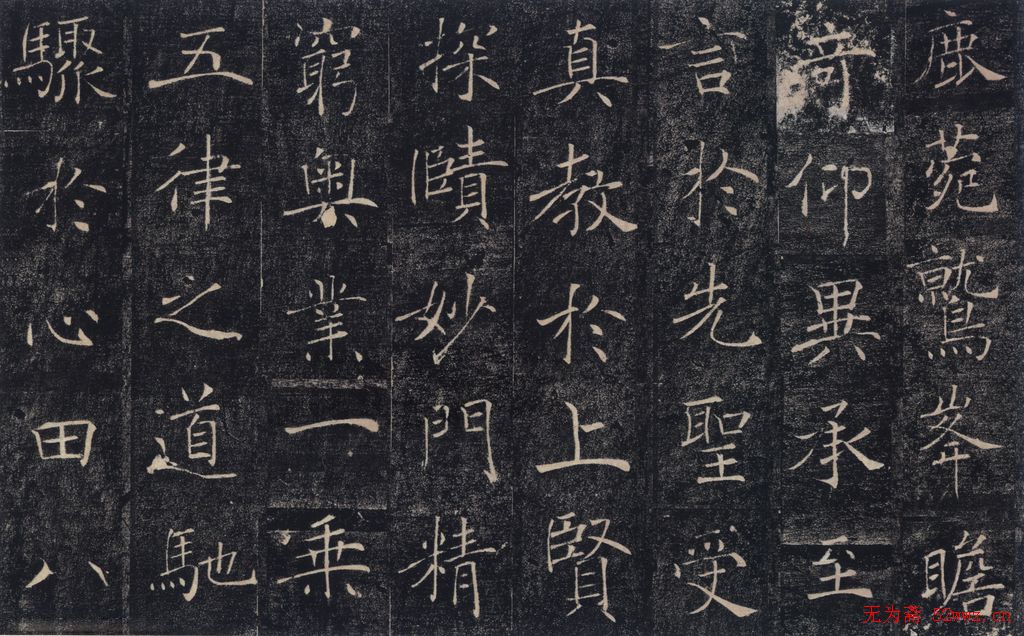 鹿菀鷲峯瞻
奇仰異承至
言於先聖受
真教於上賢
探賾妙門精
窮奧業一乗
五律之道馳
驟於心田八
无为斋 52wwz.cn